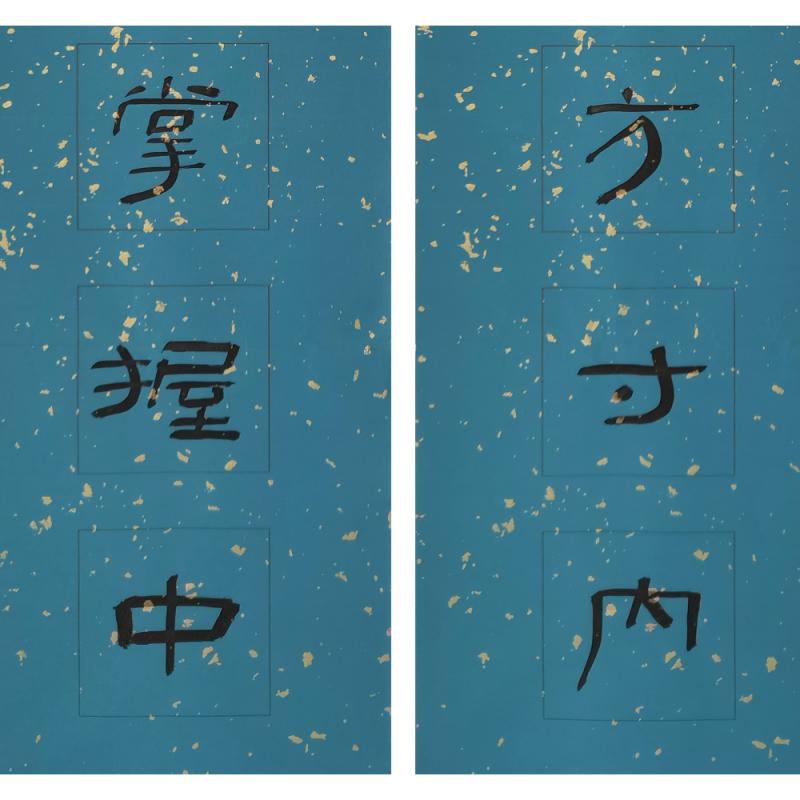 方寸内
掌握中